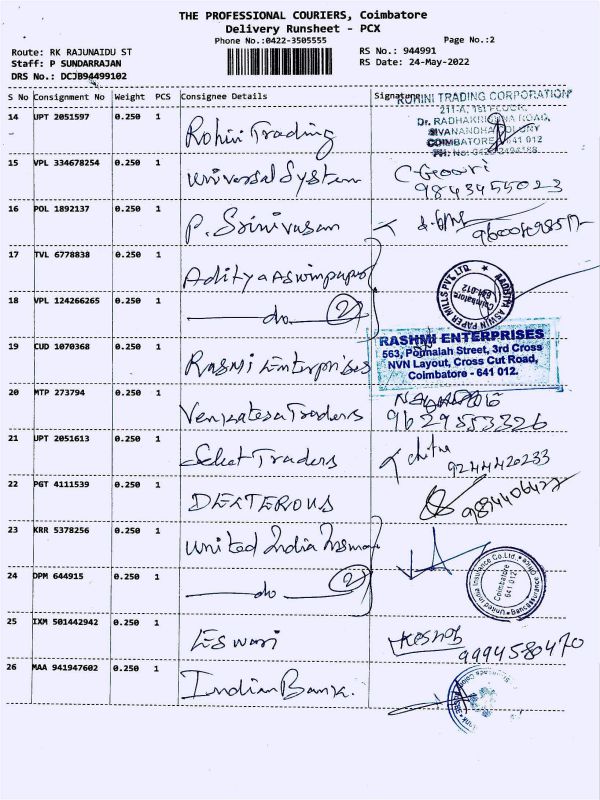 THE PROFESSIONAL COURIERS, Coimbatore
Delivery Runsheet - PCX
Phone No.:0422-3505555
Page No.:2
Route: RK RAJUNAIDU ST
RS No.: 944991
Staff: P SUNDARRAJAN
RS Date: 24-May-2022
DRS No.: DCJB94499102
S No Consignment No Weight PCS Consignee Details Signature
ROHINI TRADING CORPORATION
211-A, 1st FLOOR,
14 UPT 2051597 0.250 1 Rohini Trading
Dr. RADHAKRISHNA ROAD,
SIVANANDHA COLONY
COIMBATORE 641 012
PH: No:
15 VPL 334678254 0.250 1 Universal System C-Gowri
9843455023
16 POL 1892137 0.250 1 P. Srinivasan
17 TVL 6778838 0.250 1 Aditya Aswin paper
AADITYA ASWIN PAPER MILLS PVT. LTD.
Coimbatore
641-012
18 VPL 124266265 0.250 1 do (2)
RASHMI ENTERPRISES
563, Ponnaiah Street, 3rd Cross
NVN Layout, Cross Cut Road,
Coimbatore - 641 012.
19 CUD 1070368 0.250 1 Rasmi Enterprises
20 MTP 273794 0.250 1 Venkatesa Traders
9629553326
21 UPT 2051613 0.250 1 Select Traders chitra
9244420233
22 PGT 4111539 0.250 1 DEXTEROUS
23 KRR 5378256 0.250 1 United India
United India Insurance Co.Ltd.
Coimbatore
641 012
24 DPM 644915 0.250 1 do (2)
25 IXM 501442942 0.250 1 Eswari
9994580470
26 MAA 941947602 0.250 1 Indian Bank.